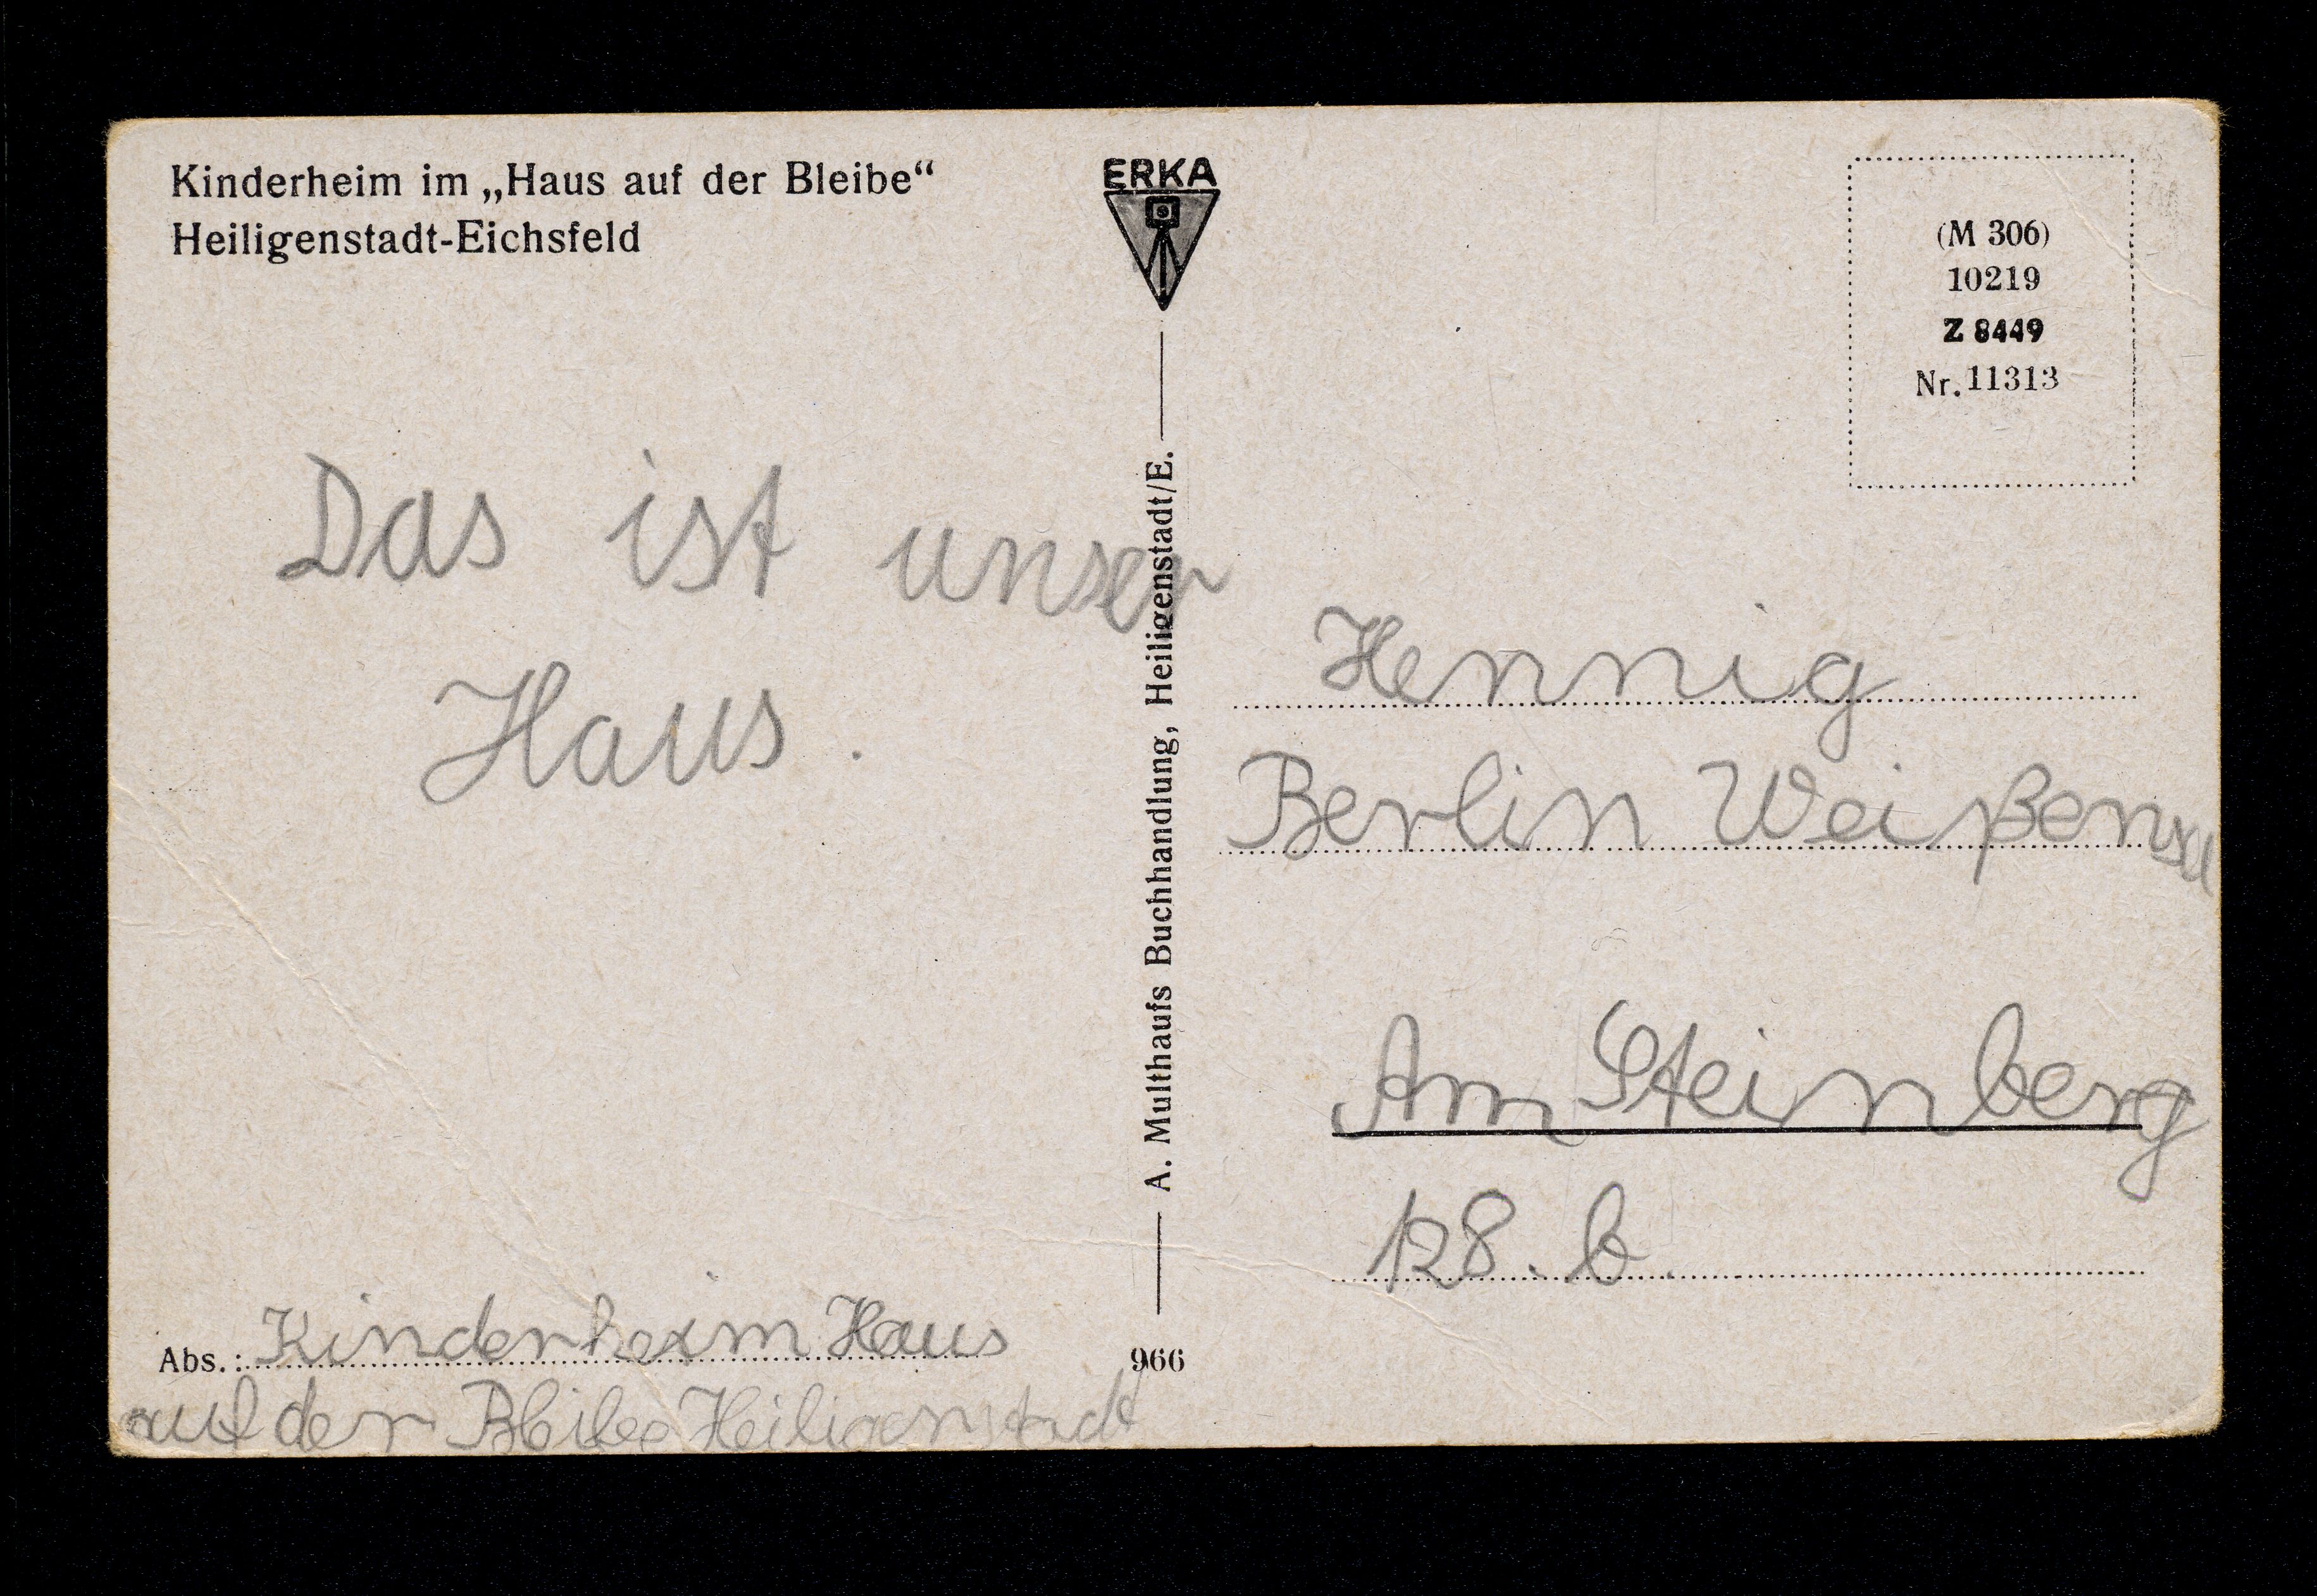 Kinderheim im „Haus auf der Bleibe“
Heiligenstadt-Eichsfeld
Das ist unser
Haus.
Abs.: Kinderheim Haus
auf der Bleibe Heiligenstadt
ERKA
A. Multhaufs Buchhandlung, Heiligenstadt/E.
966
(M 306)
10219
Z 8449
Nr. 11313
Hennig
Berlin Weißensee
Am Steinberg
128. b.